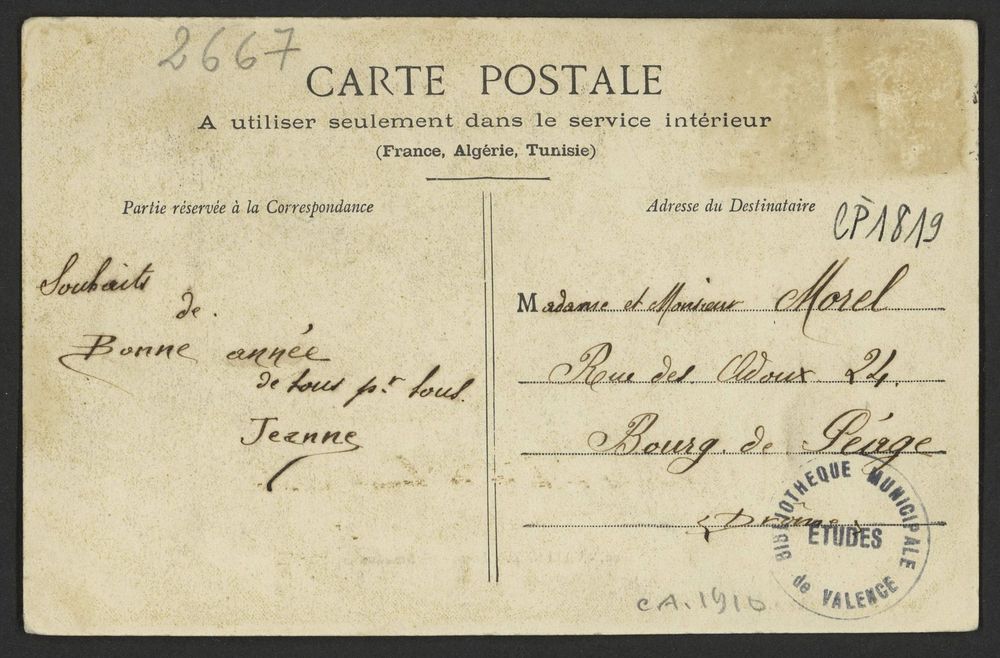 2667
CARTE POSTALE
A utiliser seulement dans le service intérieur
(France, Algérie, Tunisie)
Partie réservée à la Correspondance
Adresse du Destinataire
CP1819
Souhaits
de
Bonne année
de tous pr tous.
Jeanne
Madame et Monsieur Morel
Rue des Adoux 24.
Bourg. de Péage
(Drôme)
BIBLIOTHEQUE MUNICIPALE
ETUDES
de VALENCE
CA. 1910